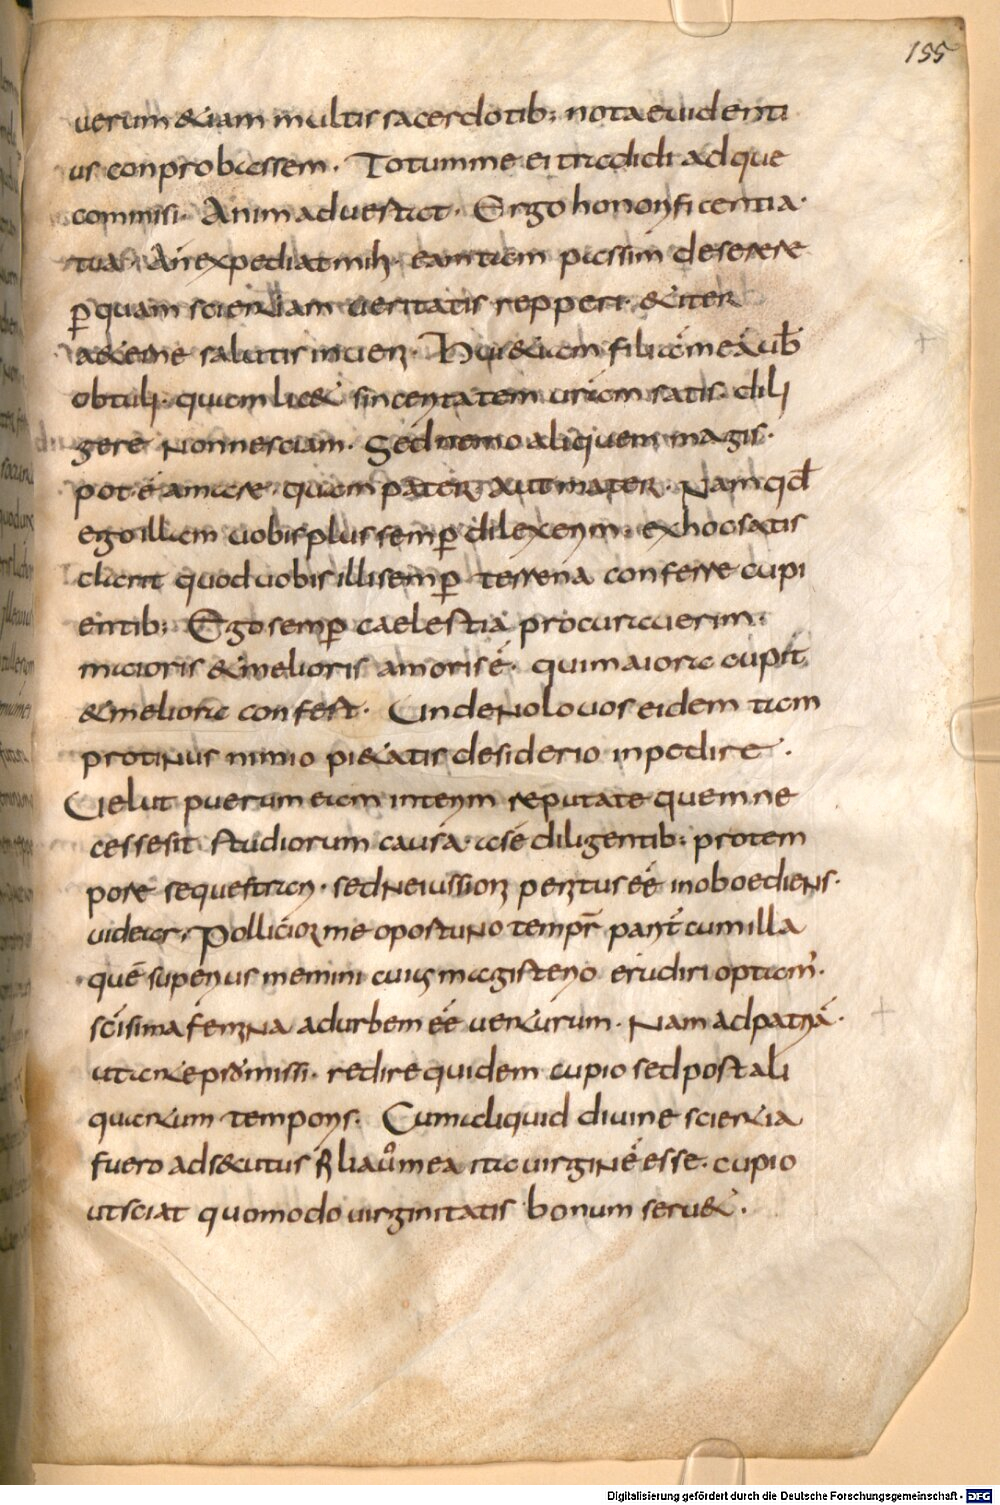 155
uerum &iam multis sacerdotib; nota euidenti
us conprobassem. Totum me ei tradidi adque
commisi. Animaduertat. Ergo honorificentia.
tua. An expediat mihi. eam tam passim deserere
p̱ quam scientiam ueritatis repperi. & iter
salutis inueni. filiã meã
obtuli. quam lic& sinceritatem uriam satis. dili
gere Non nesciam. Sed nemo aliquem magis.
pot ẽ amare. quam pater aut mater. Nam qđ
ego illam uobis plus semp̱ dilexerim. ex hoc satis
claret quod uobis illi semp̱ terrena conferre cupi
entib; Ego semp̱ caelestia procurauerim.
maioris & melioris amoris ẽ. qui maiora cupit
& meliora confert. Unde Nolo uos eidem tam
protinus nimio pi&atis desiderio inpedire.
Uelut puerum eam interim reputate quem ne
cesse sit studiorum causa. a se diligentib; pro tem
pore sequestrari. sed Ne iussion penitus eẽ inoboediens.
uidear. Polliceor me oportuno tempr̃ parit̃ cum illa
quẽ superius memini cuius magisterio erudiri optam̃.
scĩsima femina ad urbem eẽ uenturum. Nam ad patriã.
ut ante p̱misi. redire quidem cupio sed post ali
quantum temporis. Cum aliquid diuine scientia
fuero adsecutus filia ů mea ita uirginẽ esse. cupio
ut sciat quomodo uirginitatis bonum seru&.
Digitalisierung gefördert durch die Deutsche Forschungsgemeinschaft - DFG